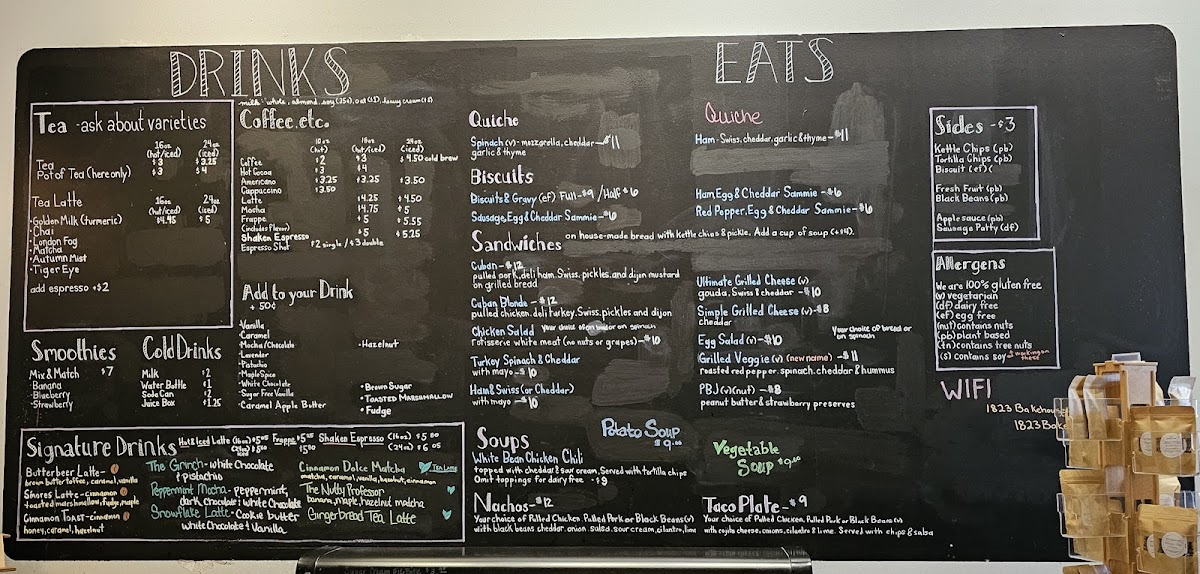 DRINKS
milk: whole, almond, soy (25¢), oat ($1), heavy cream ($1)
Tea - ask about varieties
16oz (hot/iced) 24oz (iced)
Tea $3 $3.25
Pot of Tea (here only) $3 $4
Tea Latte 16oz (hot/iced) 24oz (iced)
$4.45 $5
· Golden Milk (turmeric)
· Chai
· London Fog
· Matcha
· Autumn Mist
· Tiger Eye
add espresso +$2
Smoothies
Mix & Match $7
· Banana
· Blueberry
· Strawberry
Cold Drinks
Milk $2
Water Bottle $1
Soda Can $2
Juice Box $1.25
Coffee, etc.
10oz (hot) 16oz (hot/iced) 24oz (iced)
Coffee $2 $3 $4.50 cold brew
Hot Cocoa $3 $4
Americano $3.25 $3.25 $3.50
Cappuccino $3.50
Latte $4.25 $4.50
Mocha $4.75 $5
Frappe $5 $5.55
(includes flavor)
Shaken Espresso $5 $5.25
Espresso Shot $2 single / $3 double
Add to your Drink
+ 50¢
· Vanilla
· Caramel
· Mocha/Chocolate
· Lavender
· Pistachio
· Maple Spice
· White Chocolate
· Sugar Free Vanilla
· Caramel Apple Butter
· Hazelnut
· Brown Sugar
· Toasted Marshmallow
· Fudge
Signature Drinks
Hot & Iced Latte (16oz)
Frappe
Shaken Espresso (16oz) $5
(24oz) $6
Butterbeer Latte -
brown butter toffee, caramel, vanilla
Smores Latte - cinnamon
toasted marshmallow, fudge, maple
Cinnamon Toast - cinnamon
honey, caramel, hazelnut
The Grinch - white chocolate
& pistachio
Peppermint Mocha - peppermint,
dark chocolate & white chocolate
Snowflake Latte - Cookie butter
white chocolate & vanilla
Cinnamon Dolce Matcha
matcha, caramel, vanilla, hazelnut, cinnamon
The Nutty Professor
banana, maple, hazelnut matcha
Gingerbread Tea Latte
Tea Latte
EATS
Quiche
Spinach (v) - mozzarella, cheddar - $11
garlic & thyme
Quiche
Ham - Swiss, cheddar, garlic & thyme - $11
Biscuits
Biscuits & Gravy (ef) Full - $9 / Half $6
Sausage, Egg & Cheddar Sammie - $6
Ham, Egg & Cheddar Sammie - $6
Red Pepper, Egg & Cheddar Sammie - $6
Sandwiches
on house-made bread with kettle chips & pickle. Add a cup of soup (+$4).
Cuban - $12
pulled pork, deli ham, Swiss, pickles, and dijon mustard
on grilled bread
Cuban Blonde - $12
pulled chicken, deli turkey, Swiss, pickles and dijon
Chicken Salad Your choice of on bread or on spinach
rotisserie white meat (no nuts or grapes) - $10
Turkey Spinach & Cheddar
with mayo - $10
Ham & Swiss (or Cheddar)
with mayo - $10
Ultimate Grilled Cheese (v)
gouda, Swiss & cheddar - $10
Simple Grilled Cheese (v) - $8
cheddar
Egg Salad (v) - $10
Your choice of bread or on spinach
Grilled Veggie (v) (new name) - $11
roasted red pepper, spinach, cheddar & hummus
PBJ (v)(nut) - $8
peanut butter & strawberry preserves
Soups
White Bean Chicken Chili
topped with cheddar & sour cream. Served with tortilla chips
Omit toppings for dairy free - $9
Potato Soup
$9.00
Vegetable
Soup $9.00
Nachos - $12
Your choice of Pulled Chicken, Pulled Pork or Black Beans (v)
with black beans, cheddar, onion, salsa, sour cream, cilantro, lime
Taco Plate - $9
Your choice of Pulled Chicken, Pulled Pork or Black Beans (v)
with cojita cheese, onions, cilantro & lime. Served with chips & salsa
Sides - $3
Kettle Chips (pb)
Tortilla Chips (pb)
Biscuit (ef)(
Fresh Fruit (pb)
Black Beans (pb)
Apple sauce (pb)
Sausage Patty (df)
Allergens
We are 100% gluten free
(v) vegetarian
(df) dairy free
(ef) egg free
(nut) contains nuts
(pb) plant based
(tn) contains tree nuts
(s) contains soy working on these
WIFI
1823 Bakehou
1823 Bake